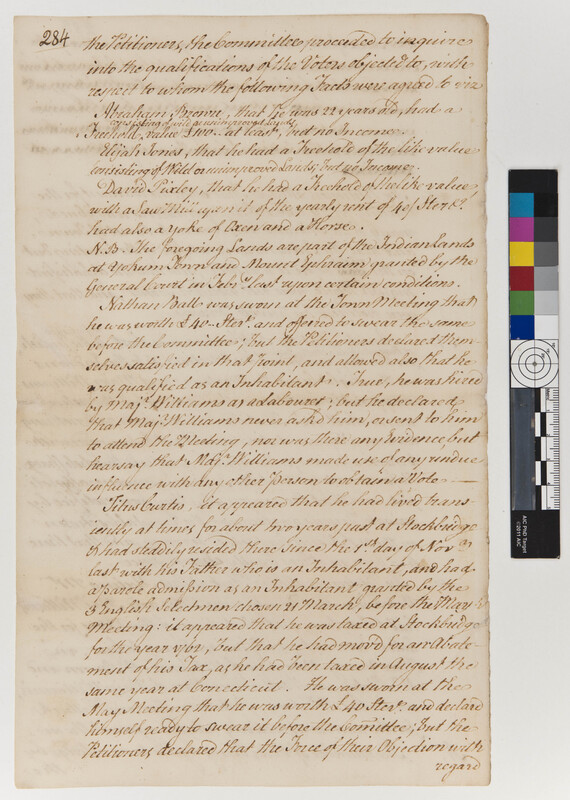 284
the Petitioners, the Committee proceeded to inquire
into the qualifications of the Voters objected to, with
respect to whom the following Facts were agreed to viz
Abraham Brown, that he was 22 years old, had a
consisting of wild or unimproved Lands
Freehold, value £100- at least, but no Income.
Elijah Jones, that he had a Freehold of the like value
consisting of Wild or unimproved Lands; but no Income
David Pixley, that he had a Freehold of the like value,
with a Saw Mill upon it of the yearly rent of 40/ Sterg.
had also a yoke of Oxen and a Horse.
N.B. The foregoing Lands are part of the Indian Lands
at Yokum Town and Mount Ephraim granted by the
General Court in Feby. last upon certain conditions.
Nathan Ball was sworn at the Town Meeting that
he was worth £40- Sterg. and offered to swear the same
before the Committee; but the Petitioners declared them-
selves satisfied in that point, and allowed also that he
was qualified as an Inhabitant. True, he was hired
by Majr. Williams as a Labourer; but he declared,
that Majr. Williams never ask'd him, or sent to him
to attend the Meeting, nor was there any Evidence, but
hearsay that Majr. Williams made use of any undue
influence with any other person to obtain a Vote
Titus Curtis, it appeared that he had lived trans-
iently at times for about two years past at Stockbridge
& had steadily resided there since the 1st. day of Novr.
last with his Father who is an Inhabitant, and had
a parole admission as an Inhabitant granted by the
3 English Selectmen chosen 21 March, before the May
Meeting: it appeared that he was taxed at Stockbridge
for the year 1762, but that he had mov'd for an Abate-
ment of his Tax, as he had been taxed in August the
same year at Conecticut. He was sworn at the
May Meeting that he was worth £40 Sterg. and declard
himself ready to swear it before the Comittee; but the
Petitioners declared that the Force of their Objection with
regard
AIC PhD Target
©2011 AIC